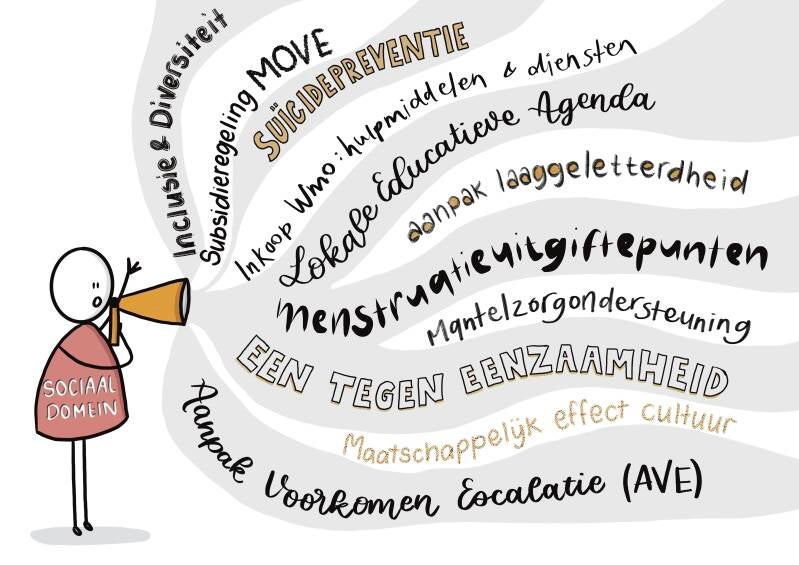 Inclusie & Diversiteit
Subsidieregeling MOVE
SUÏCIDEPREVENTIE
Inkoop Wmo: hulpmiddelen & diensten
Lokale Educatieve Agenda
aanpak laaggeletterdheid
Menstruatieuitgiftepunten
Mantelzorgondersteuning
EEN TEGEN EENZAAMHEID
Maatschappelijk effect cultuur
Aanpak Voorkomen Escalatie (AVE)
SOCIAAL
DOMEIN